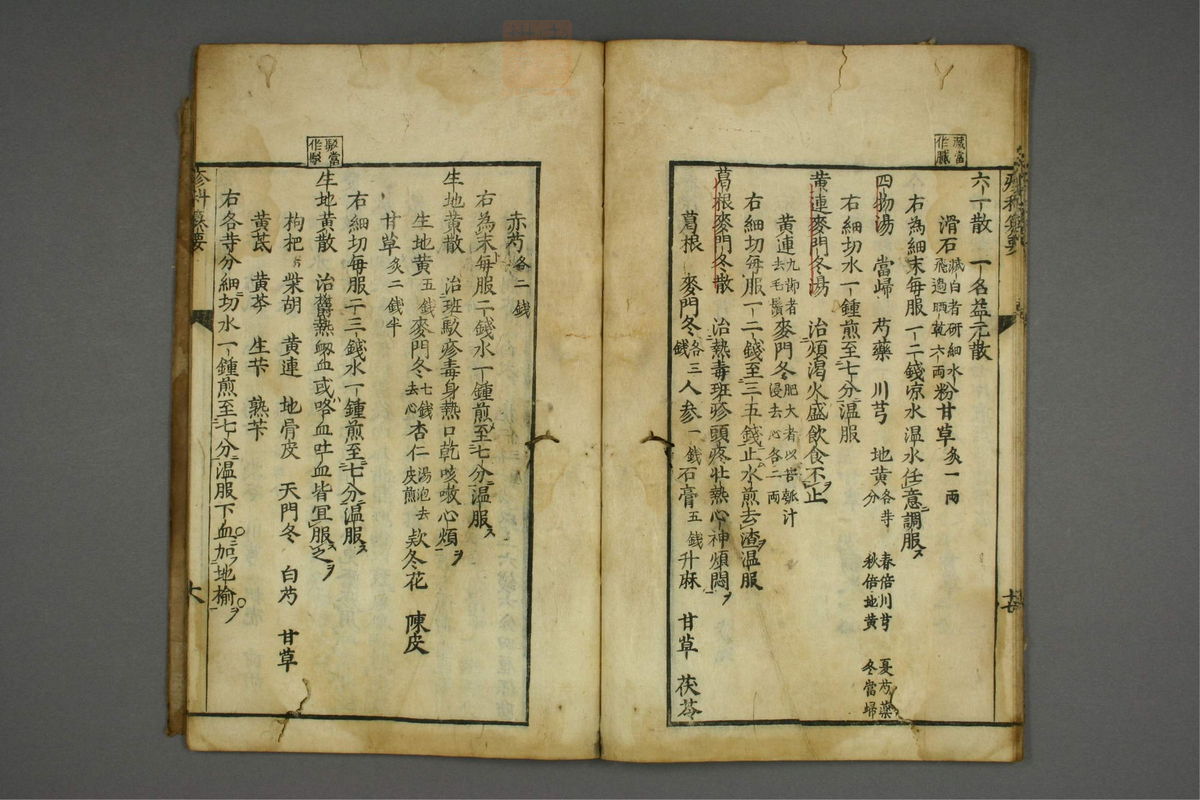 藏當
作臟
六一散 一名益元散
滑石 膩白者研細水飛過晒乾六兩 粉甘草 炙一兩
右為細末每服一二錢凉水温水任意調服
四物湯 當歸 芍藥 川芎 地黄 各等分 春倍川芎 夏芍藥 秋倍地黄 冬當歸
右細切水一鍾煎至七分温服
黄連麥門冬湯 治煩渴火盛飲食不止
黄連 九節者去毛鬚 麥門冬 肥大者以苦瓠汁浸去心各二兩
右細切每服一二錢至三五錢止水煎去渣温服
葛根麥門冬散 治熱毒班疹頭疼壯熱心神煩悶
葛根 麥門冬 各三錢 人参 一錢 石膏 五錢 升麻 甘草 茯苓
赤芍 各二錢
右為末每服二錢水一鍾煎至七分温服
生地黄散 治班駁疹毒身熱口乾咳嗽心煩
生地黄 五錢 麥門冬 七錢去心 杏仁 湯泡去皮煎 欵冬花 陳皮
甘草 炙二錢半
右細切每服二三錢水一鍾煎至七分温服
生地黄散 治欝熱衂血或咯血吐血皆宜服之
枸杞 柴胡 黄連 地骨皮 天門冬 白芍 甘草
黄芪 黄芩 生苄 熟苄
右各等分細切水一鍾煎至七分温服下血加地榆